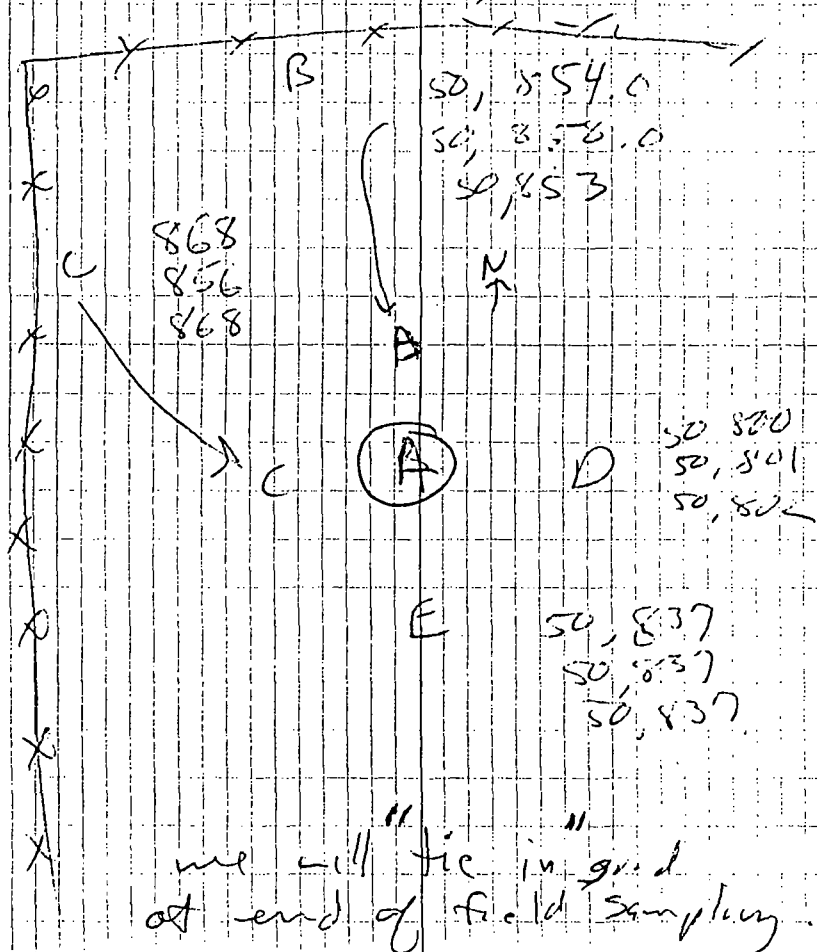 B
50, 854.0
50, 858.0
50,853
868
856
868
C
N
B
C
A
D
50 800
50, 801
50, 802
E
50, 837
50, 837
50, 837
we will "tie in" grid
at end of field sampling.